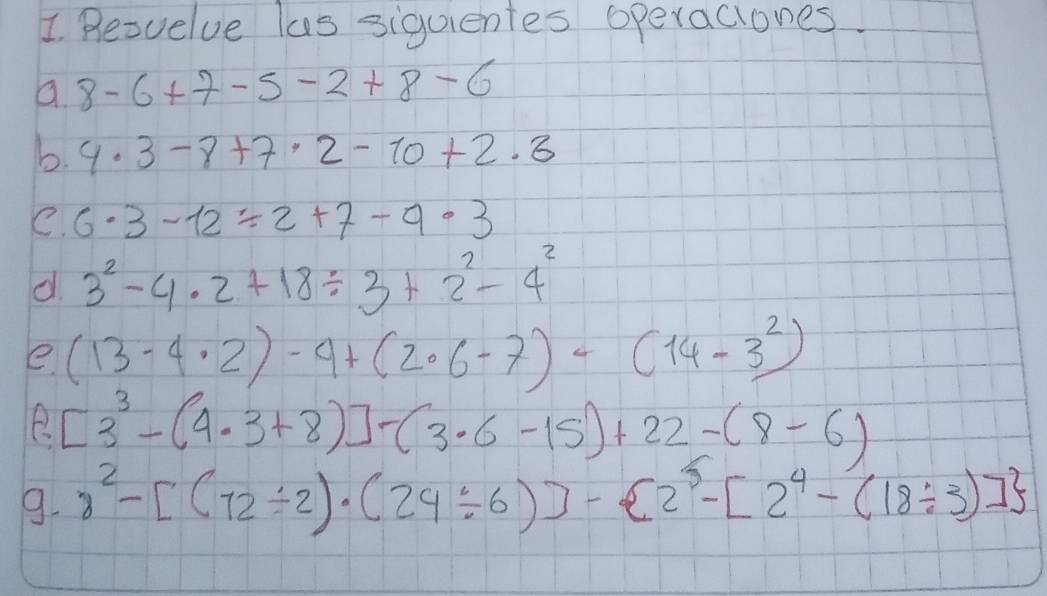 I. Resuelve las siguientes operaciones.
a. 8-6+7-5-2+8-6
b. 4·3-8+7·2-10+2·3
c. 6·3-12÷2+7-4·3
d. 3²-4·2+18÷3+2²-4²
e. (13-4·2)-4+(2·6-7)-(14-3²)
f. [3³-(4·3+8)]-(3·6-15)+22-(8-6)
g. 8²-[(12÷2)·(24÷6)]-{2⁵-[2⁴-(18÷3)]}